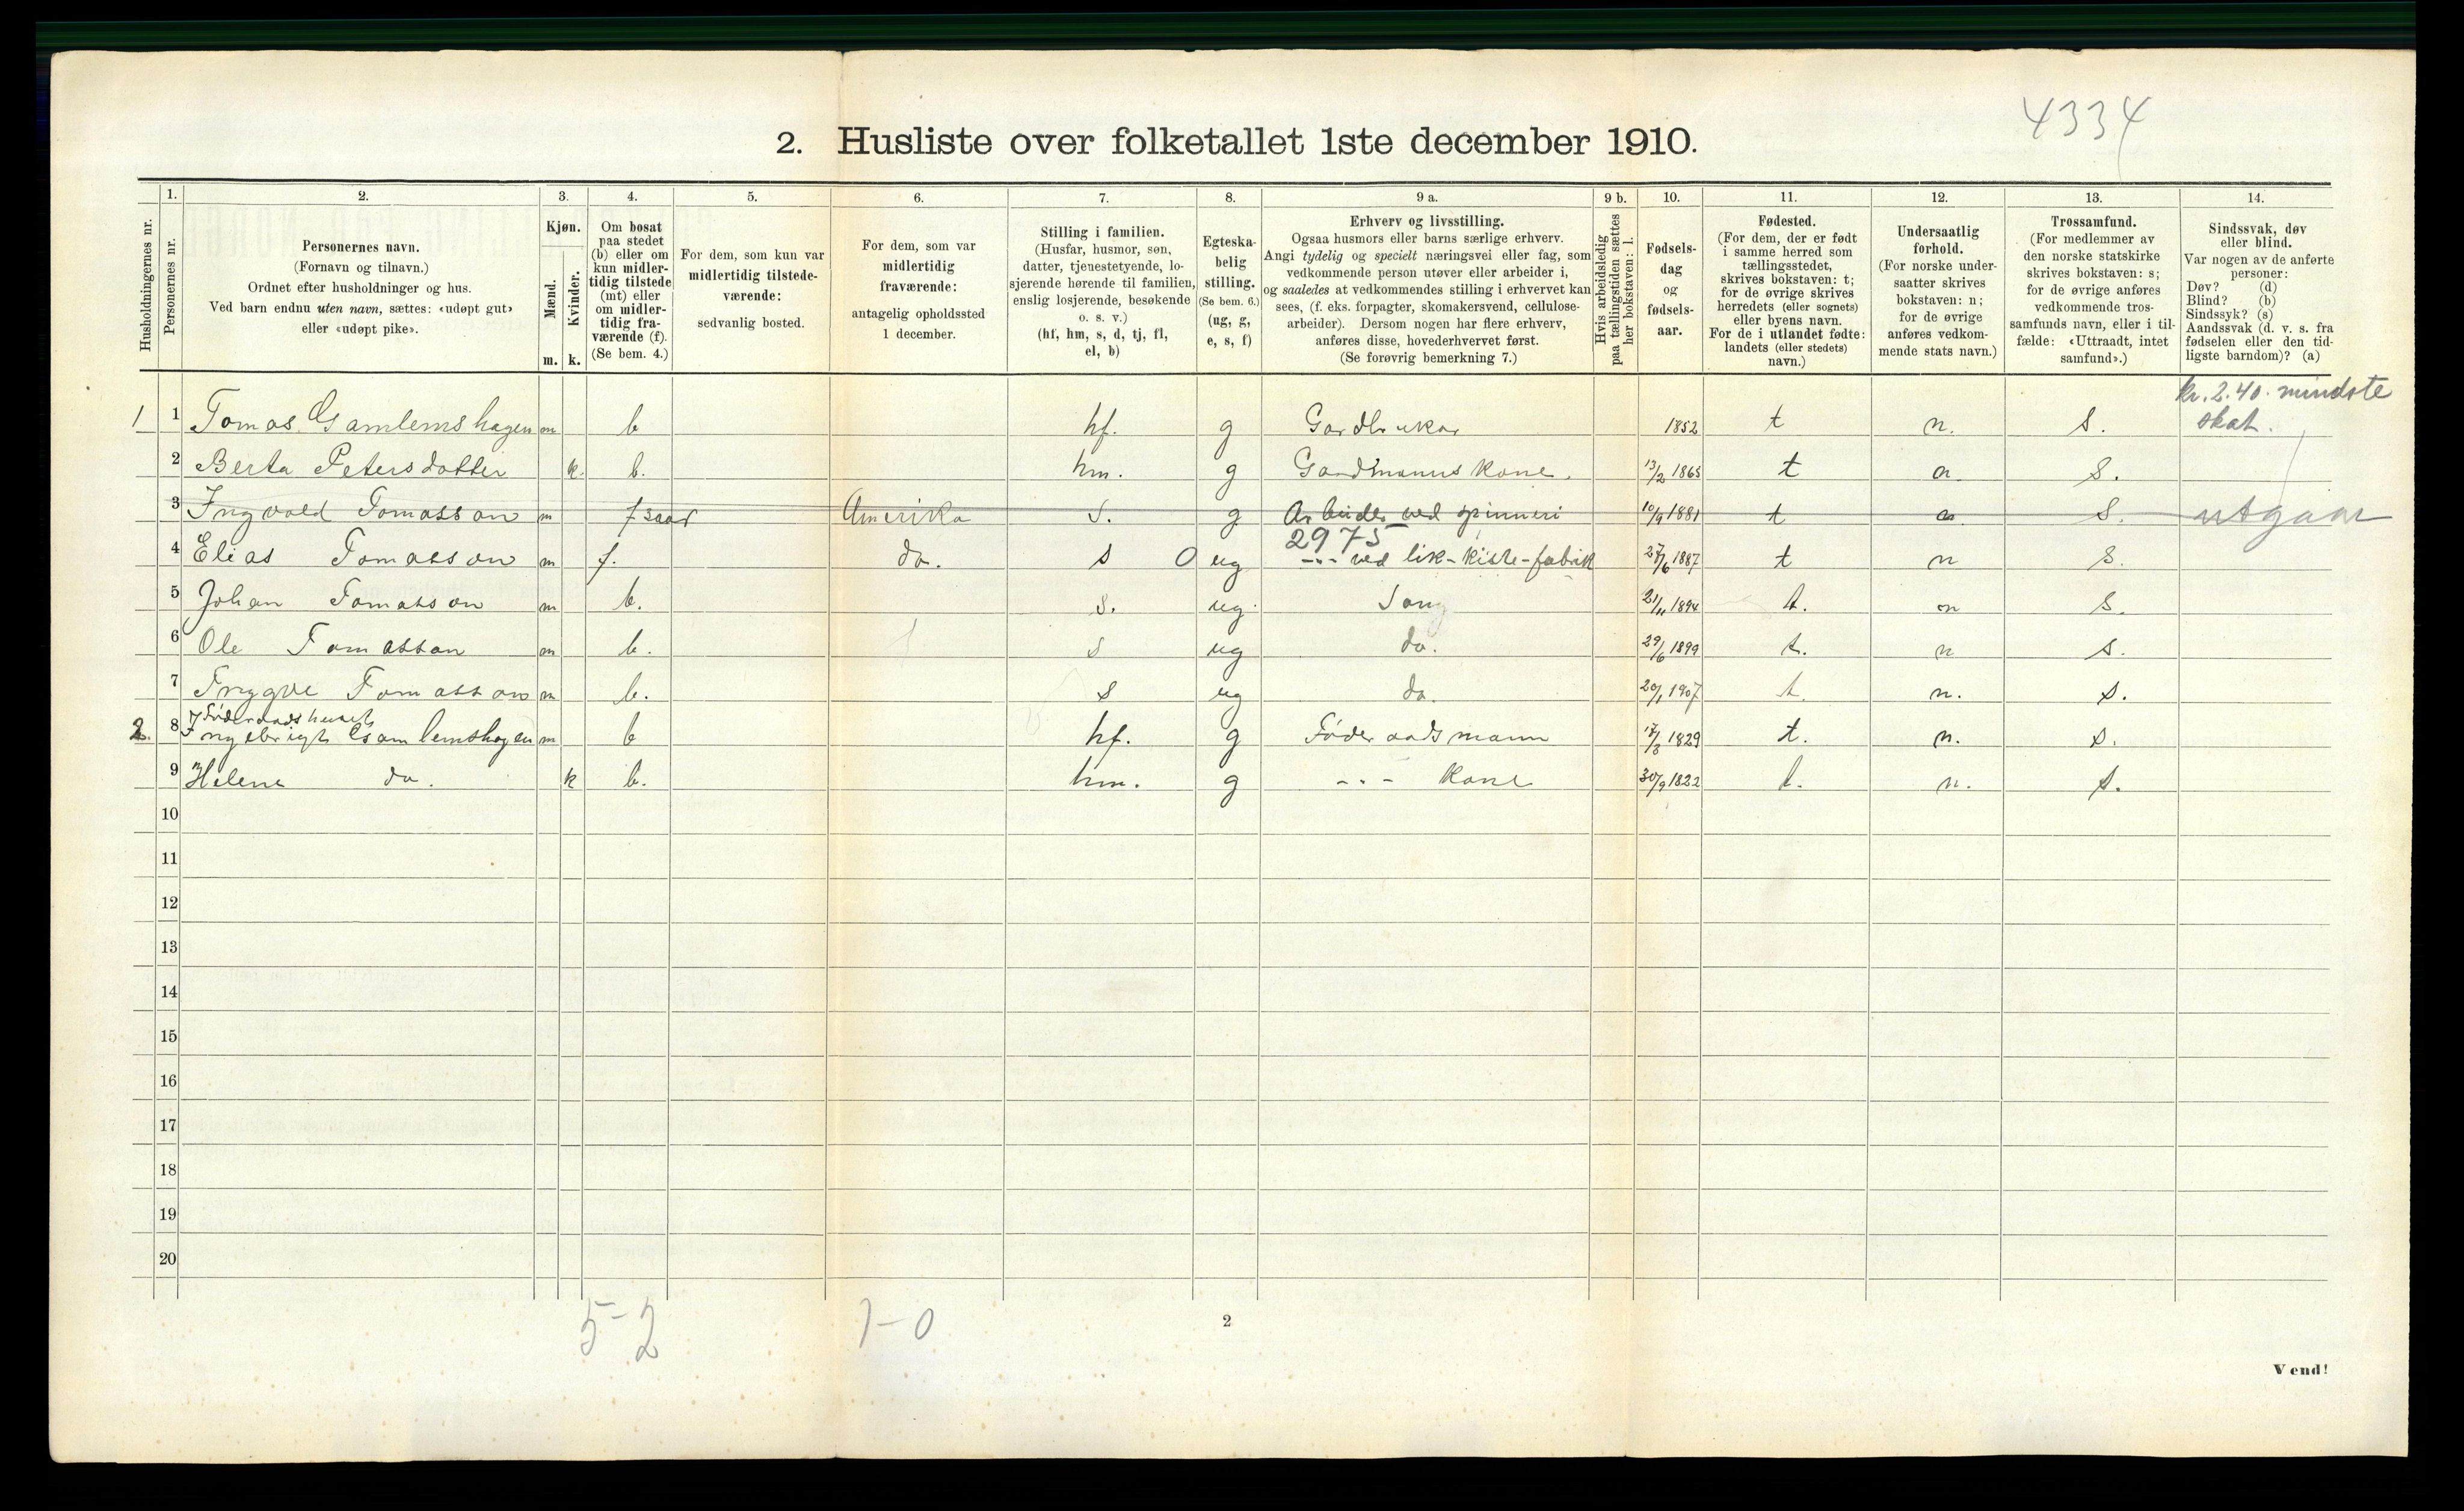 4334
2. Husliste over folketallet 1ste december 1910.
Husholdningernes nr.
1.
Personernes nr.
2.
Personernes navn.
(Fornavn og tilnavn.)
Ordnet efter husholdninger og hus.
Ved barn endnu uten navn, sættes: «udøpt gut»
eller «udøpt pike».
3.
Kjøn.
Mænd.
Kvinder.
m. k.
4.
Om bosat
paa stedet
(b) eller om
kun midler-
tidig tilstede
(mt) eller
om midler-
tidig fra-
værende (f).
(Se bem. 4.)
5.
For dem, som kun var
midlertidig tilstede-
værende:
sedvanlig bosted.
6.
For dem, som var
midlertidig
fraværende:
antagelig opholdssted
1 december.
7.
Stilling i familien.
(Husfar, husmor, søn,
datter, tjenestetyende, lo-
sjerende hørende til familien,
enslig losjerende, besøkende
o. s. v.)
(hf, hm, s, d, tj, fl,
el, b)
8.
Egteska-
belig
stilling.
(Se bem. 6.)
(ug, g,
e, s, f)
9 a.
Erhverv og livsstilling.
Ogsaa husmors eller barns særlige erhverv.
Angi tydelig og specielt næringsvei eller fag, som
vedkommende person utøver eller arbeider i,
og saaledes at vedkommendes stilling i erhvervet kan
sees, (f. eks. forpagter, skomakersvend, cellulose-
arbeider). Dersom nogen har flere erhverv,
anføres disse, hovederhvervet først.
(Se forøvrig bemerkning 7.)
9 b.
Hvis arbeidsledig
paa tællingstiden sættes
her bokstaven: l.
10.
Fødsels-
dag
og
fødsels-
aar.
11.
Fødested.
(For dem, der er født
i samme herred som
tællingsstedet,
skrives bokstaven: t;
for de øvrige skrives
herredets (eller sognets)
eller byens navn.
For de i utlandet fødte:
landets (eller stedets)
navn.)
12.
Undersaatlig
forhold.
(For norske under-
saatter skrives
bokstaven: n;
for de øvrige
anføres vedkom-
mende stats navn.)
13.
Trossamfund.
(For medlemmer av
den norske statskirke
skrives bokstaven: s;
for de øvrige anføres
vedkommende tros-
samfunds navn, eller i til-
fælde: «Uttraadt, intet
samfund».)
14.
Sindssvak, døv
eller blind.
Var nogen av de anførte
personer:
Døv? (d)
Blind? (b)
Sindssyk? (s)
Aandssvak (d. v. s. fra
fødselen eller den tid-
ligste barndom)? (a)
kr. 2.40. mindste
skat.
1 1 Tomas Gamlemshagen m b hf. g Gardbrukar 1852 t n. s.
2 Berta Petersdotter k. b. hm. g Gardmanns kone. 13/2 1865 t n. s.
3 Ingvald Tomasson m Amerika s. g Arbeider ved spinneri 10/9 1881 t n s. utgaar
2975
4 Elias Tomasson m f. do. s 0 ug -"- ved lik-kiste-fabrik 27/6 1887 t n s.
5 Johan Tomasson m b. s. ug. 21/11 1894 t. n s.
6 Ole Tomasson m b. s ug do. 29/6 1899 t. n s.
7 Trygve Tomasson m b. s ug do. 20/1 1907 t. n. s.
Føderaadshuset
2. 8 Ingebrigt Gamlemshagen m b hf. g Føderaadsmann 17/8 1829 t. n. s.
9 Helene do. k b. hm. g -"- kone 30/9 1822 t. n. s.
10
11
12
13
14
15
16
17
18
19
20
5-2 1-0
2
Vend!